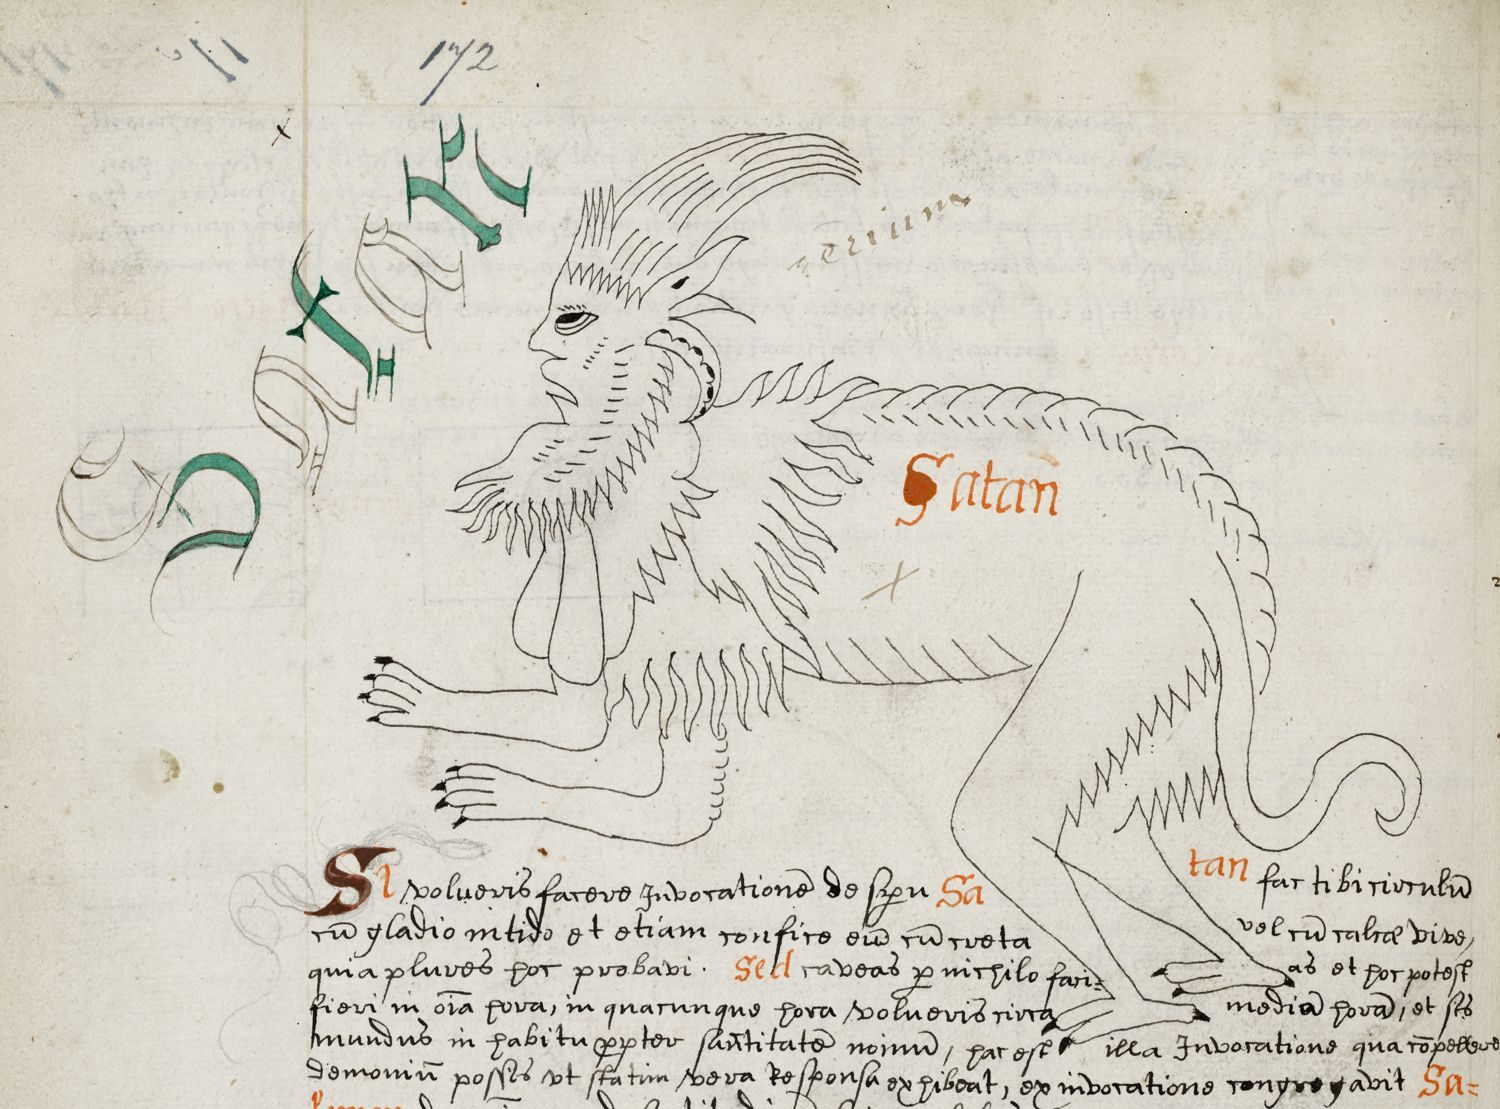 172
Satan
Satan
Si volueris facere Invocationē de spū Sa tan fac tibi circulū
cū gladio nitido et etiam confice eūd cū creta vel cū calce vive,
quia plures hoc probavi. Sed caveas p nichilo faci= as et hoc potest
fieri in oīa hora, in quacunque hora volueris circa mediā horā, et sis
mundus in habitu ppter sanctitatē noinū, hac est illa Invocatione qua cōpellere
demoniū possis vt statim vera Responsa exhibeat, ex invocatione congregavit Sa=